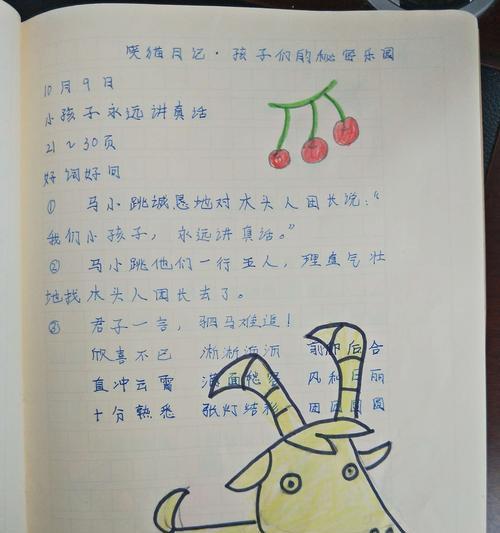 笑猫日记·孩子们的秘密乐园
10月9日
小孩子永远讲真话
21~30页
好词好句
① 马小跳诚恳地对木头人团长说:“
我们小孩子，永远讲真话。”
② 马小跳他们一行五人，理直气壮
地找木头人团长去了。
③ 君子一言，驷马难追！
欣喜不已 淅淅沥沥 前仰后合
直冲云霄 满面 风和日丽
十分熟悉 张灯结彩 团团圆圆